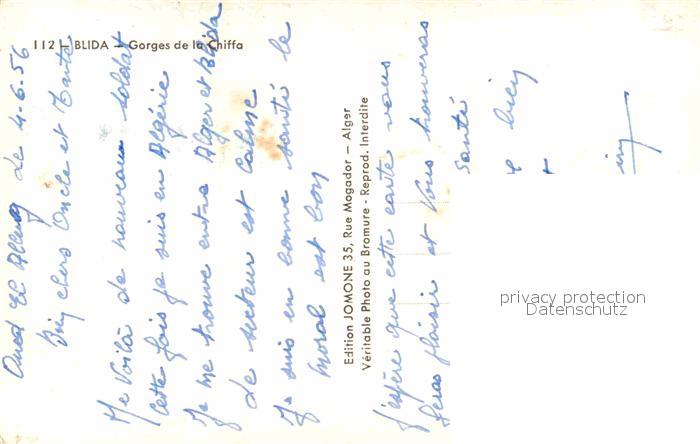 112 - BLIDA - Gorges de la Chiffa
Oued El Alleug le 4.6.56
Bien chers Oncle et Tante
Me Voilà de nouveau soldat
cette fois je suis en Algérie
Je me trouve entre Alger et Blida
Le secteur est calme
Je suis en bonne santé le
moral est bon
Edition JOMONE 35, Rue Mogador - Alger
Véritable Photo au Bromure - Reprod. Interdite
J'espère que cette carte vous
feras plaisir et vous trouveras
santé
privacy protection
Datenschutz